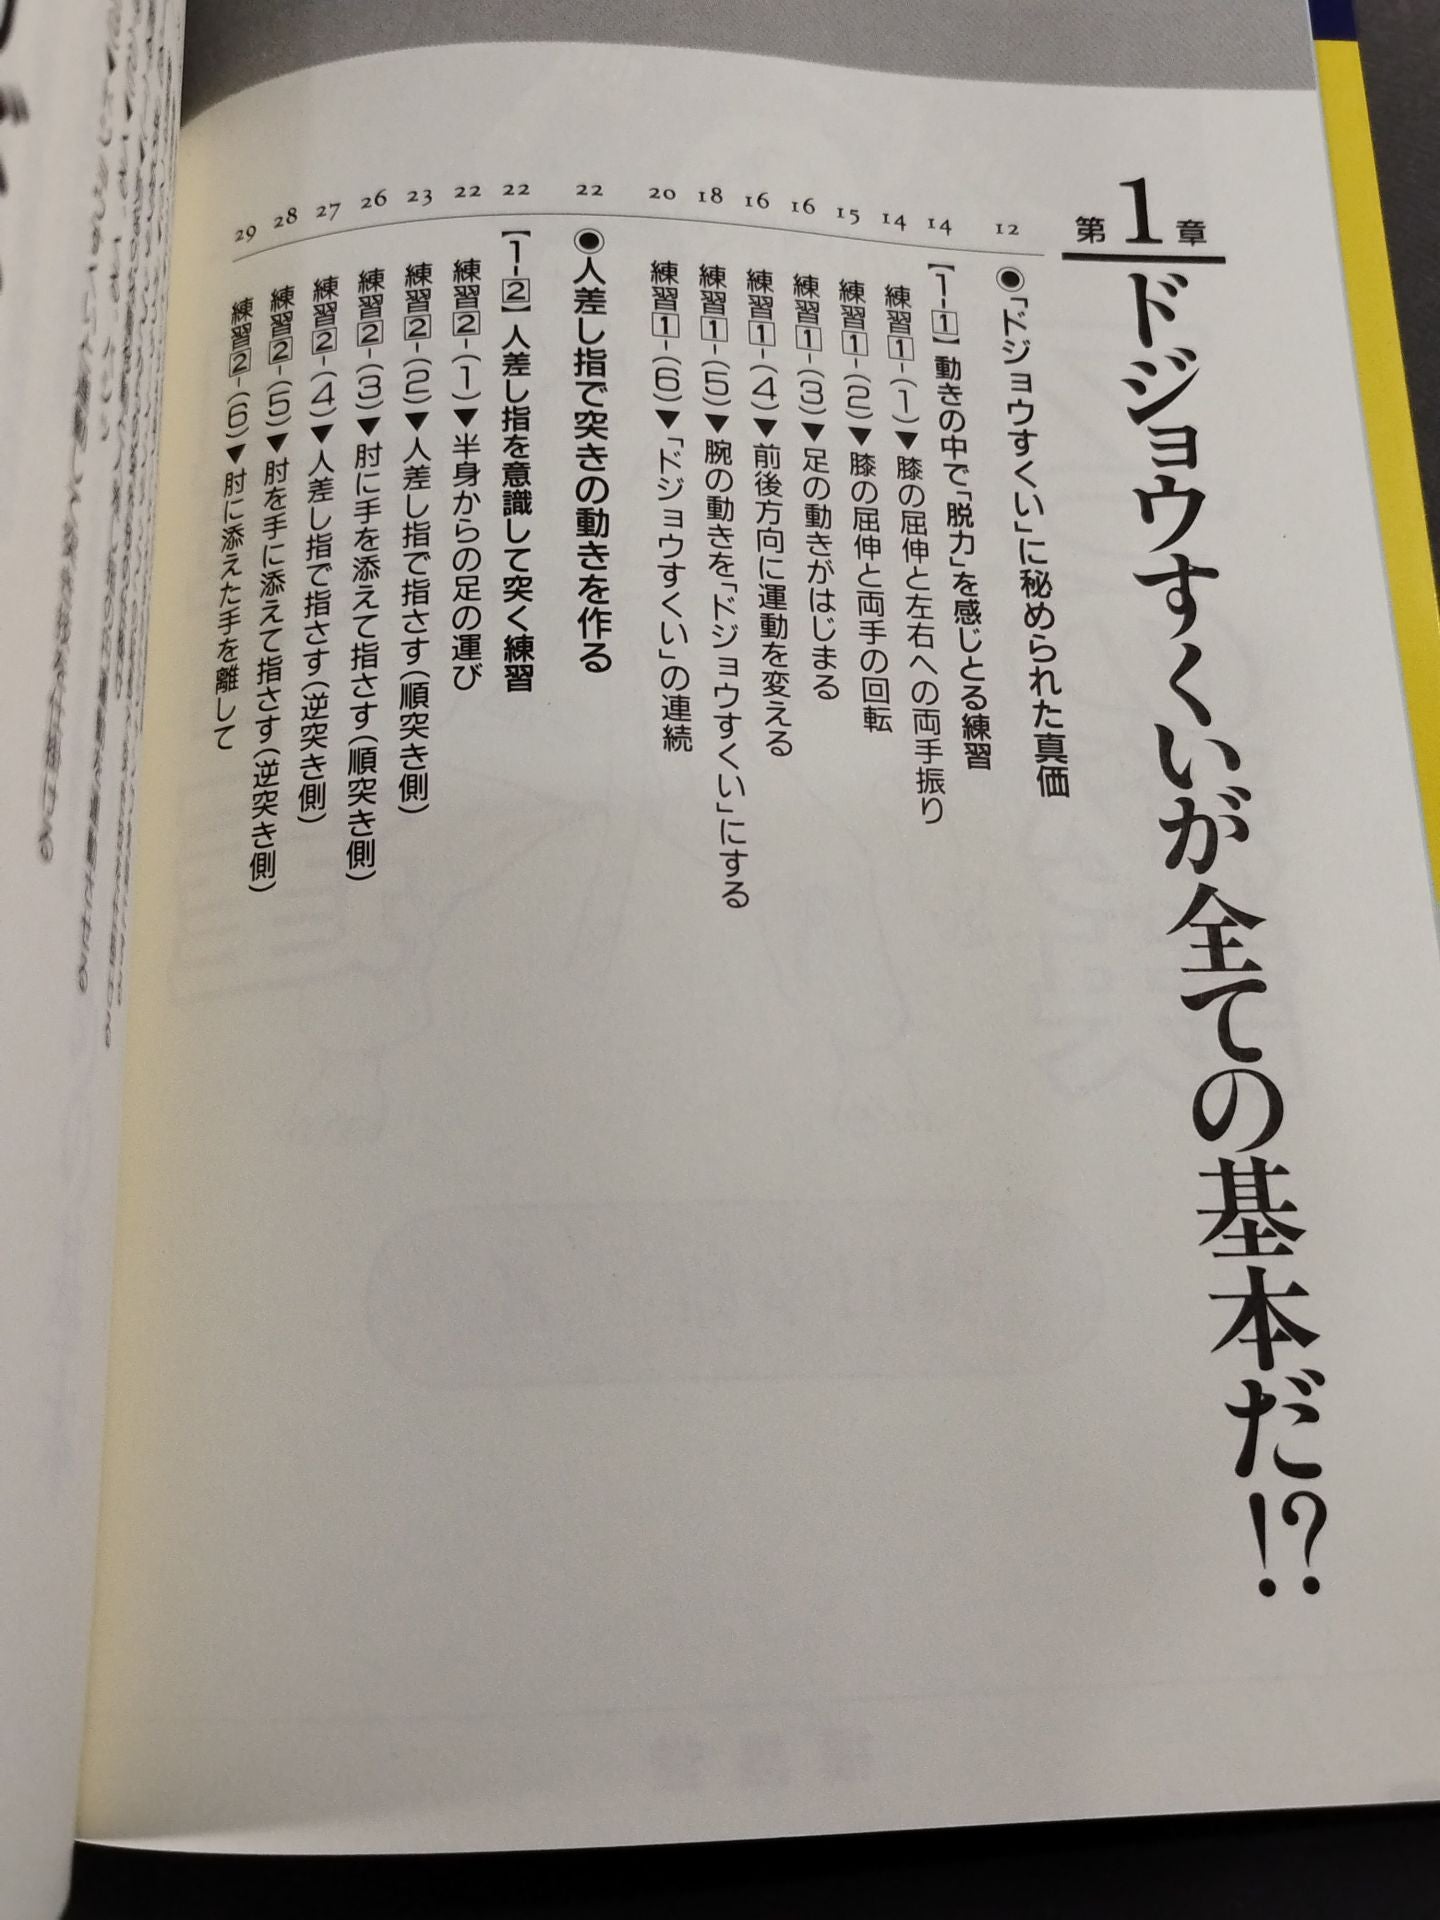 第1章
ドジョウすくいが全ての基本だ!?
12 ◉「ドジョウすくい」に秘められた真価
14 【1-1】動きの中で「脱力」を感じとる練習
14 練習1-(1)▼膝の屈伸と左右への両手振り
15 練習1-(2)▼膝の屈伸と両手の回転
16 練習1-(3)▼足の動きがはじまる
16 練習1-(4)▼前後方向に運動を変える
18 練習1-(5)▼腕の動きを「ドジョウすくい」にする
20 練習1-(6)▼「ドジョウすくい」の連続
22 ◉人差し指で突きの動きを作る
22 【1-2】人差し指を意識して突く練習
22 練習2-(1)▼半身からの足の運び
23 練習2-(2)▼人差し指で指さす(順突き側)
26 練習2-(3)▼肘に手を添えて指さす(順突き側)
27 練習2-(4)▼人差し指で指さす(逆突き側)
28 練習2-(5)▼肘を手に添えて指さす(逆突き側)
29 練習2-(6)▼肘に添えた手を離して